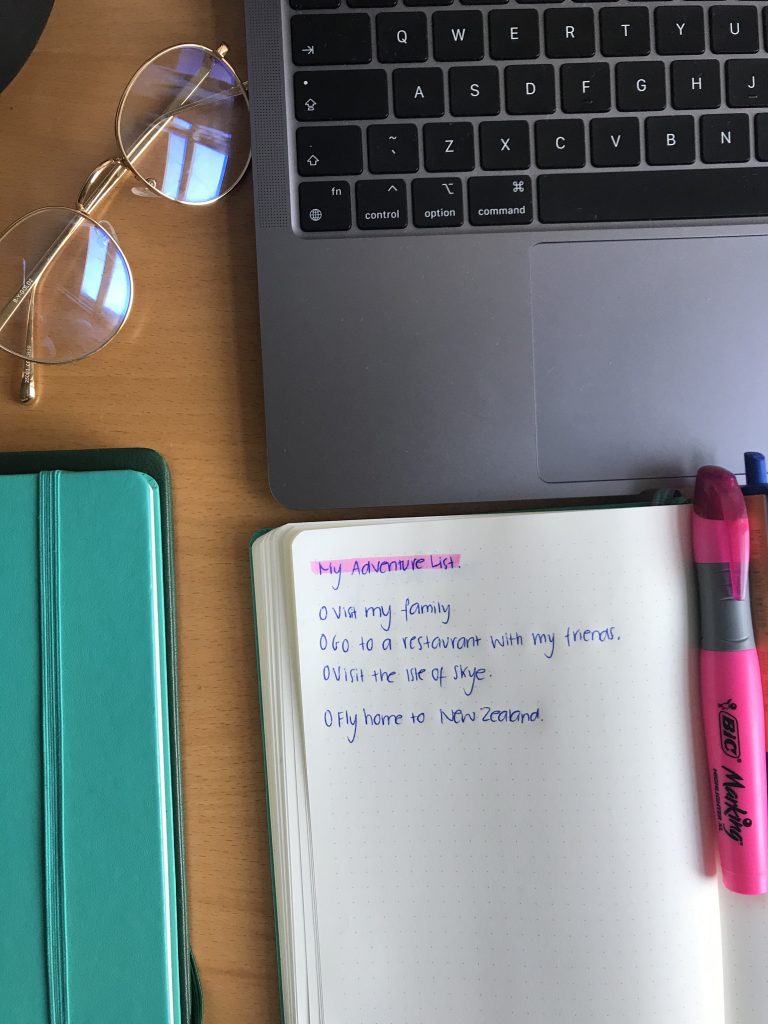 Q W E R T Y U
A S D F G H J
~ ` Z X C V B N
fn
control ^ option ⌥ command ⌘
My Adventure List.
O Visit my family
O Go to a restaurant with my friends.
O Visit the Isle of Skye.
O Fly home to New Zealand.
BIC® Marking
HIGHLIGHTER XL